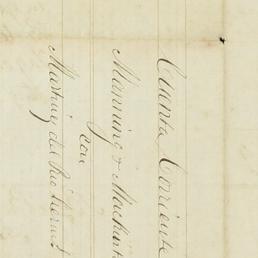 Cuenta Corriente
Manning & Mackint
con
Martinez del Rio Herms